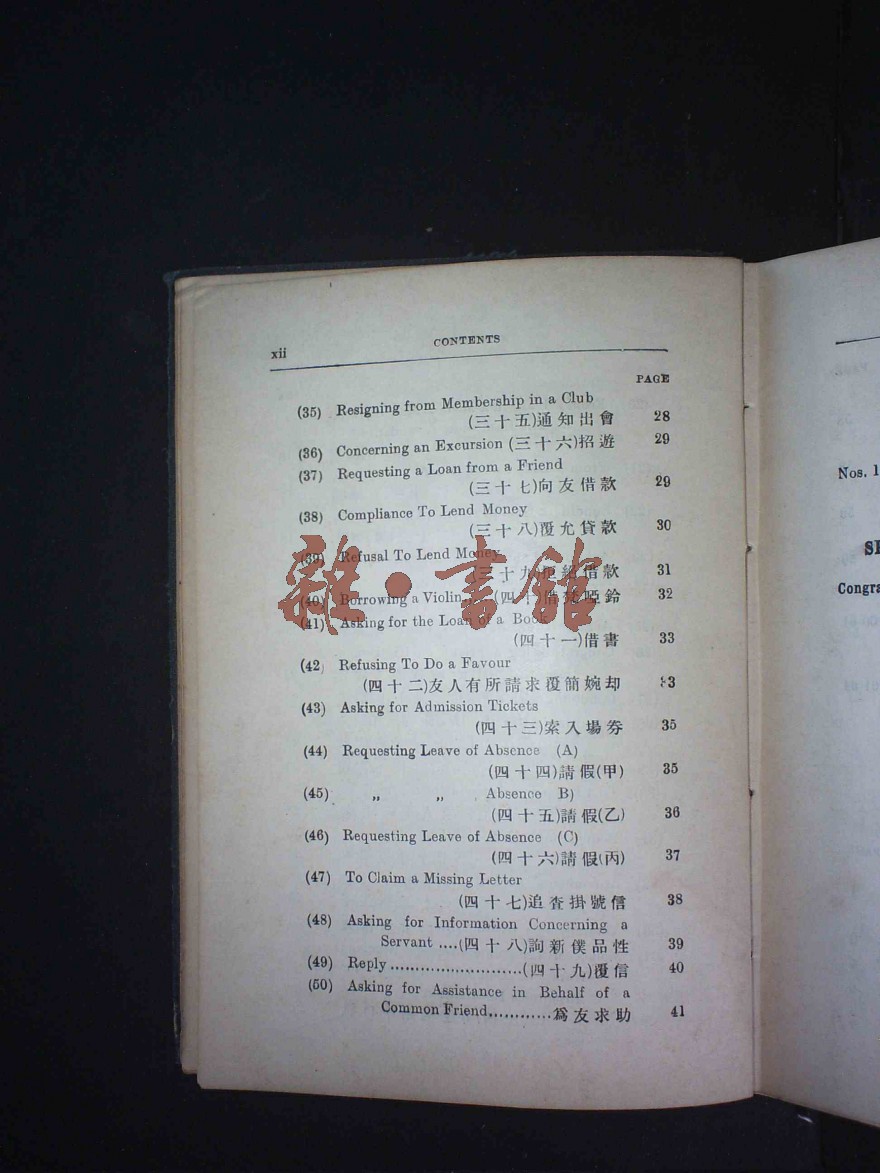 xii
CONTENTS
PAGE
(35) Resigning from Membership in a Club
(三十五)通知出會 28
(36) Concerning an Excursion (三十六)招遊 29
(37) Requesting a Loan from a Friend
(三十七)向友借款 29
(38) Compliance To Lend Money
(三十八)覆允貸款 30
(39) Refusal To Lend Money
(三十九)拒絕借款 31
(40) Borrowing a Violin (四十)借梵啞鈴 32
(41) Asking for the Loan of a Book
(四十一)借書 33
(42) Refusing To Do a Favour
(四十二)友人有所請求覆簡婉却 33
(43) Asking for Admission Tickets
(四十三)索入場券 35
(44) Requesting Leave of Absence (A)
(四十四)請假(甲) 35
(45) „ „ Absence B)
(四十五)請假(乙) 36
(46) Requesting Leave of Absence (C)
(四十六)請假(丙) 37
(47) To Claim a Missing Letter
(四十七)追查掛號信 38
(48) Asking for Information Concerning a
Servant ....(四十八)詢新僕品性 39
(49) Reply..........................(四十九)覆信 40
(50) Asking for Assistance in Behalf of a
Common Friend............爲友求助 41
雜·書館
Nos. 1
Congra